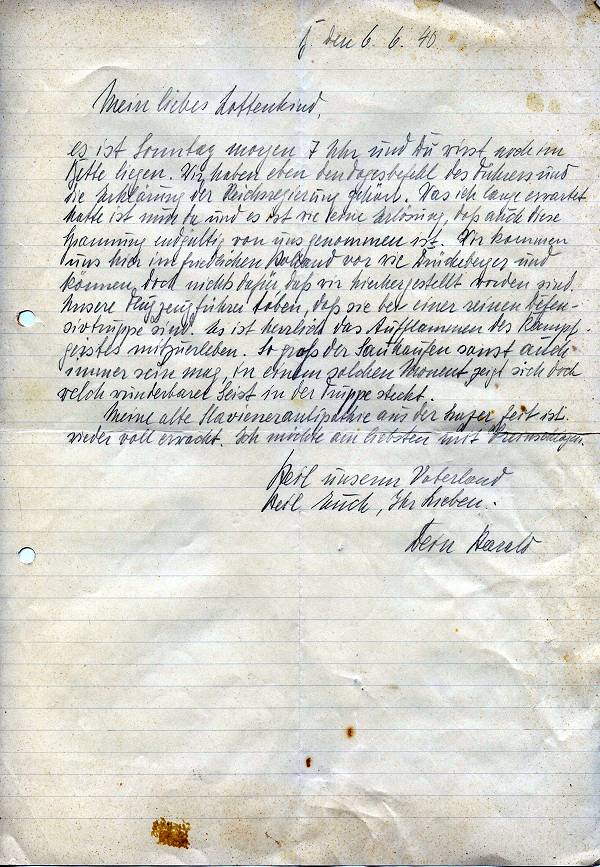 den 6. 6. 40
Mein liebes Lottenkind,
es ist Sonntag morgen 7 Uhr und Du wirst noch im
Bette liegen. Wir haben eben den Tagesbefehl des Führers und
die Erklärung der Reichsregierung gehört. Was ich lange erwartet
hatte ist nun da und es ist wie eine Erlösung, daß auch diese
Spannung endgültig von uns genommen ist. Wir kommen
uns hier im friedlichen Holland vor wie Drückeberger und
können doch nichts dafür daß wir hierhergestellt worden sind.
Unsere Flugzeugführer toben, daß sie bei einer reinen Defen-
sivtruppe sind. Es ist herrlich das Aufflammen des Kampf-
geistes mitzuerleben. So groß der Sauhaufen sonst auch
immer sein mag, in einem solchen Moment zeigt sich doch
welch wunderbarer Geist in der Truppe steckt.
Meine alte Slavenerantipathie aus der Zeit ist
wieder voll erwacht. Ich möchte am liebsten mit dreinschlagen.
Heil unserm Vaterland
Heil Euch, Ihr Lieben.
Dein Harald